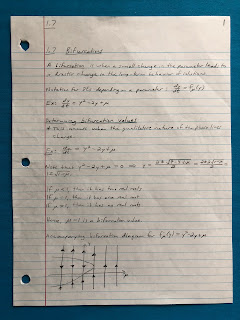 1.7
1
1.7 Bifurcations
A bifurcation is when a small change in the parameter leads to
a drastic change in the long-term behavior of solutions.
Notation for DEs depending on a parameter: dy/dt = fμ(y)
Ex: dy/dt = y² - 2y + μ
Determining bifurcation values
* This occurs when the qualitative nature of the phase lines
change.
Ex: dy/dt = y² - 2y + μ
Note that y² - 2y + μ = 0 ⇒ y =
1 ± √1-μ
If μ < 1, then it has two real roots
If μ = 1, then it has one real root
If μ > 1, then it has no real roots
Hence, μ = 1 is a bifurcation value.
Accompanying bifurcation diagram for fμ(y) = y² - 2y + μ